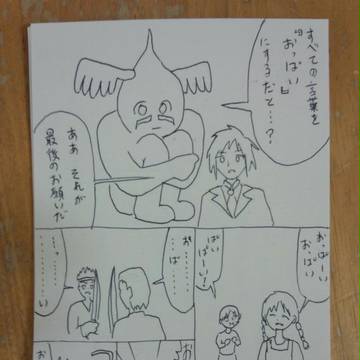 すべての言葉を
"おっぱい"
にするだと…?
ああ それが
最後のお願いだ
おっぱーい
おぱい
ぱい
ぱーい!
お……っ
……ぱ……
…っ…………
…………い